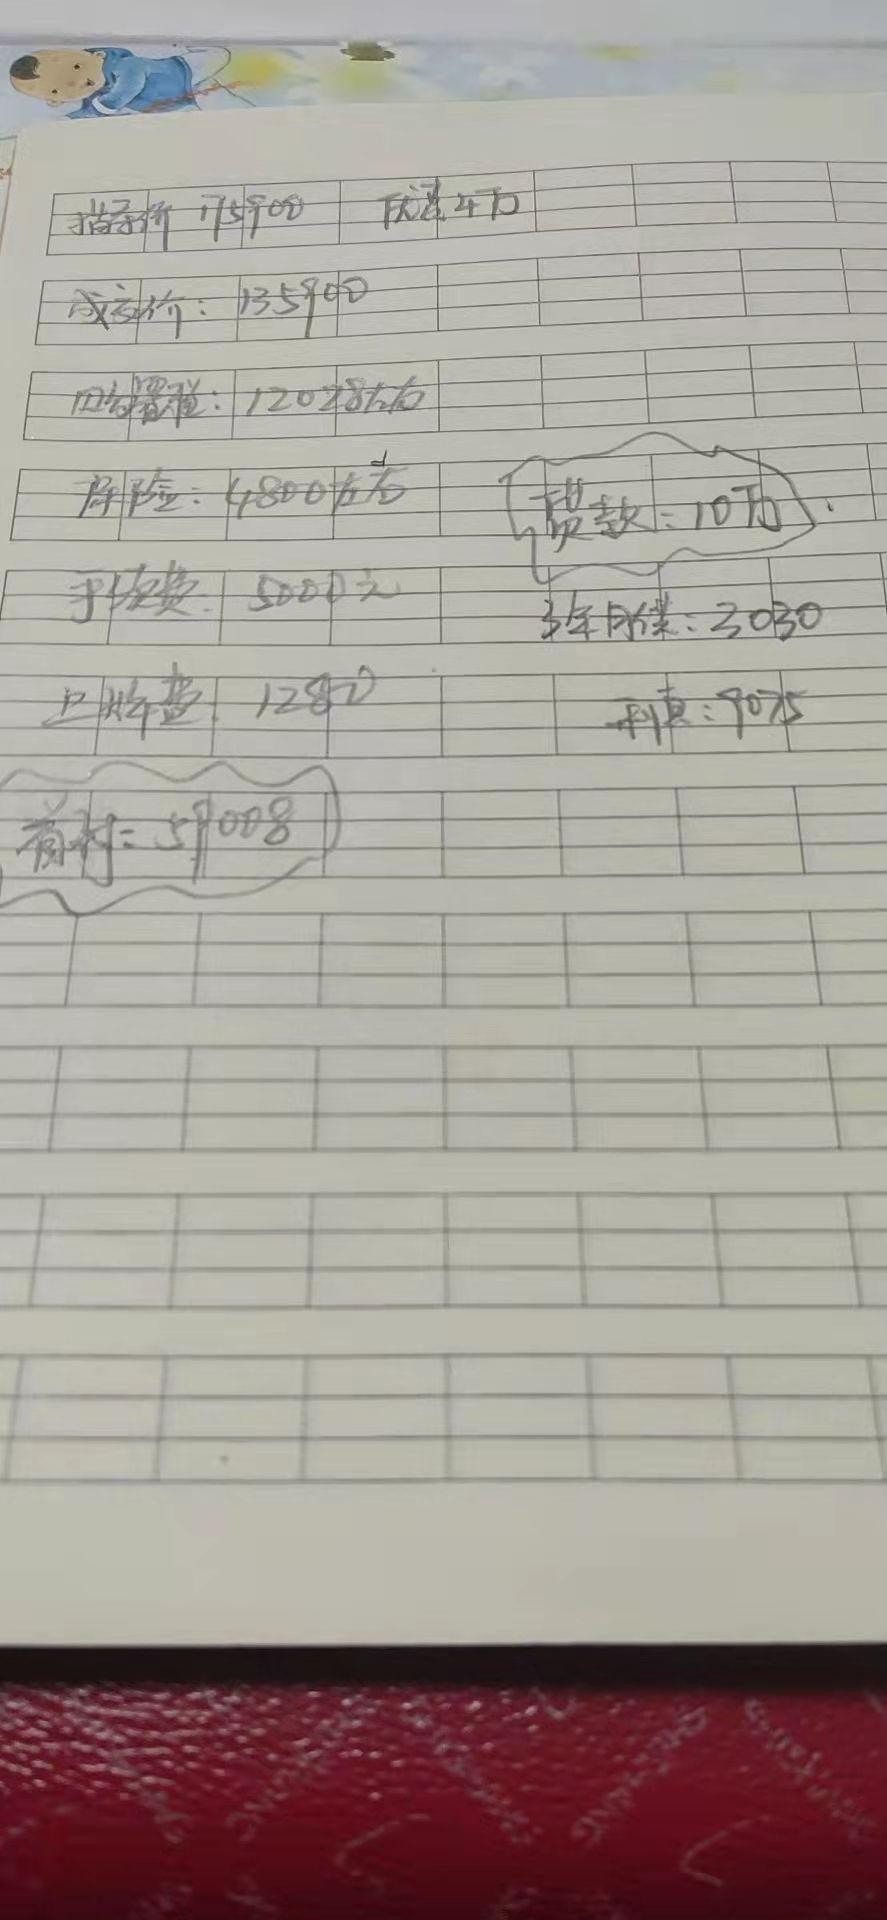 指导价 175900 优惠4万
成交价: 135900
购置税: 12028左右
保险: 4800左右
贷款: 10万
手续费 5000元
3年月供: 3030
上牌费 1280
利息: 9075
首付= 59008